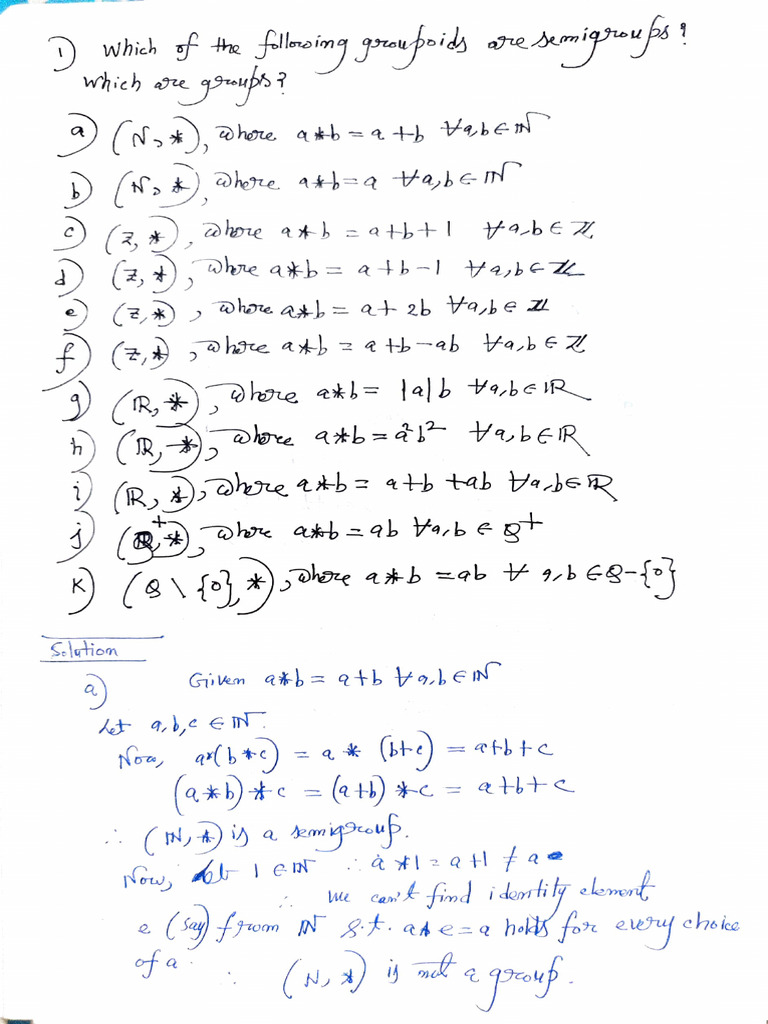 1) Which of the following groupoids are semigroups?
Which are groups?
a) (N, *), where a*b = a+b ∀a,b∈ℕ
b) (N, *), where a*b = a ∀a,b∈ℕ
c) (Z, *), where a*b = a+b+1 ∀a,b∈ℤ
d) (Z, *), where a*b = a+b-1 ∀a,b∈ℤ
e) (Z, *), where a*b = a+2b ∀a,b∈ℤ
f) (Z, *), where a*b = a+b-ab ∀a,b∈ℤ
g) (ℝ, *), where a*b = |a|b ∀a,b∈ℝ
h) (ℝ, *), where a*b = a²b² ∀a,b∈ℝ
i) (ℝ, *), where a*b = a+b+ab ∀a,b∈ℝ
j) (Q⁺, *), where a*b = ab ∀a,b∈Q⁺
K) (Q \ {0}, *), where a*b = ab ∀ a,b∈Q-{0}
Solution
a) Given a*b = a+b ∀a,b∈ℕ
Let a,b,c ∈ ℕ.
Now, a*(b*c) = a * (b+c) = a+b+c
(a*b)*c = (a+b)*c = a+b+c
∴ (ℕ, *) is a semigroup.
Now, let 1∈ℕ ∴ a*1 = a+1 ≠ a
∴ We can't find identity element
e (say) from ℕ s.t. a*e = a holds for every choice
of a. ∴ (N, *) is not a group.